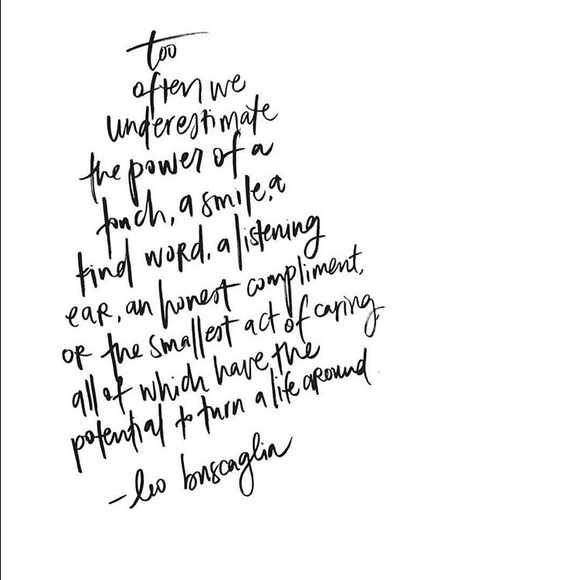 too
often we
underestimate
the power of a
touch, a smile, a
kind word, a listening
ear, an honest compliment,
or the smallest act of caring
all of which have the
potential to turn a life around
-leo buscaglia